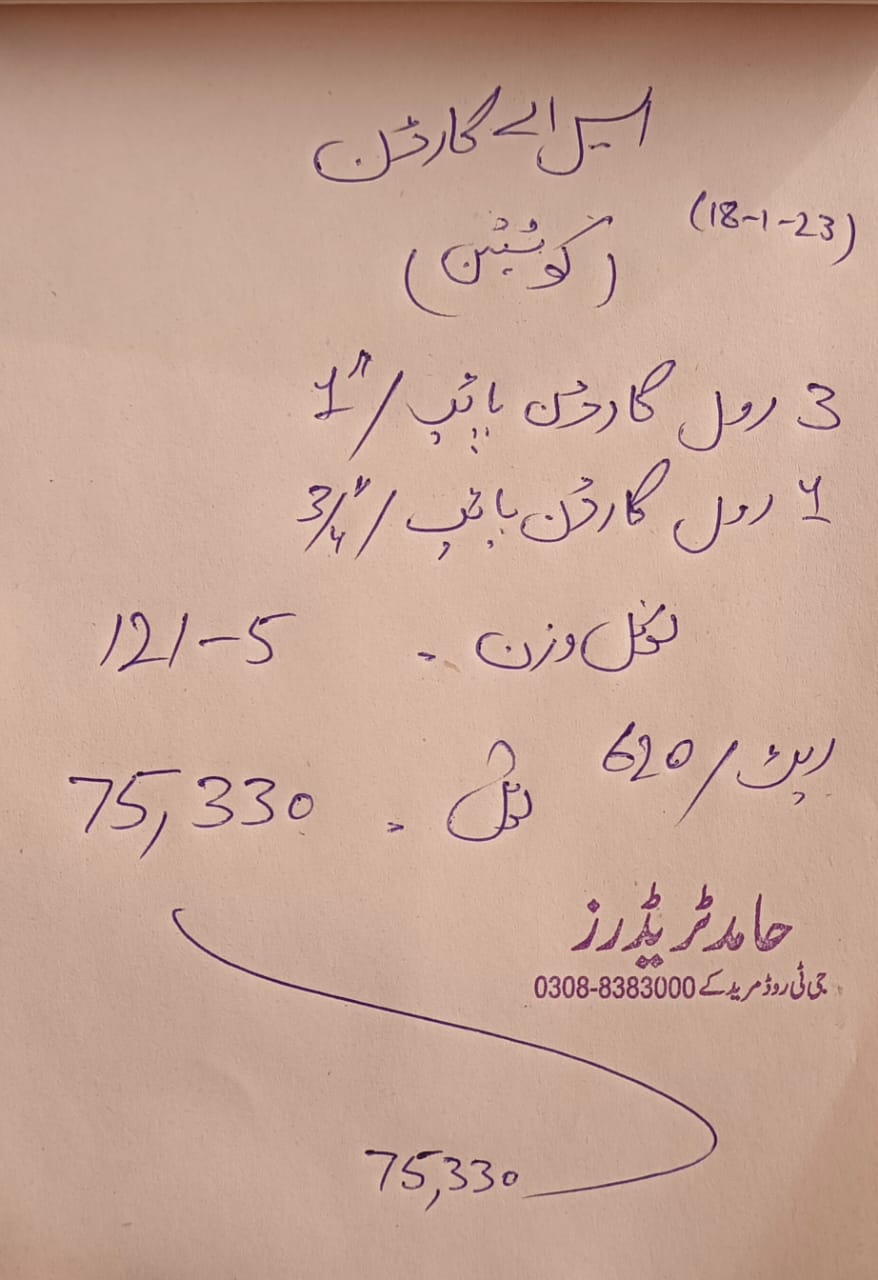 ایس اے گارڈن
(18-1-23)
(کوٹیشن)
3 رول گارڈن پائپ / 1"
1 رول گارڈن پائپ / 3/4"
ٹوٹل وزن - 121-5
ریٹ / 620 ٹوٹل - 75,330
حامد ٹریڈرز
جی ٹی روڈ مریدکے 0308-8383000
75,330